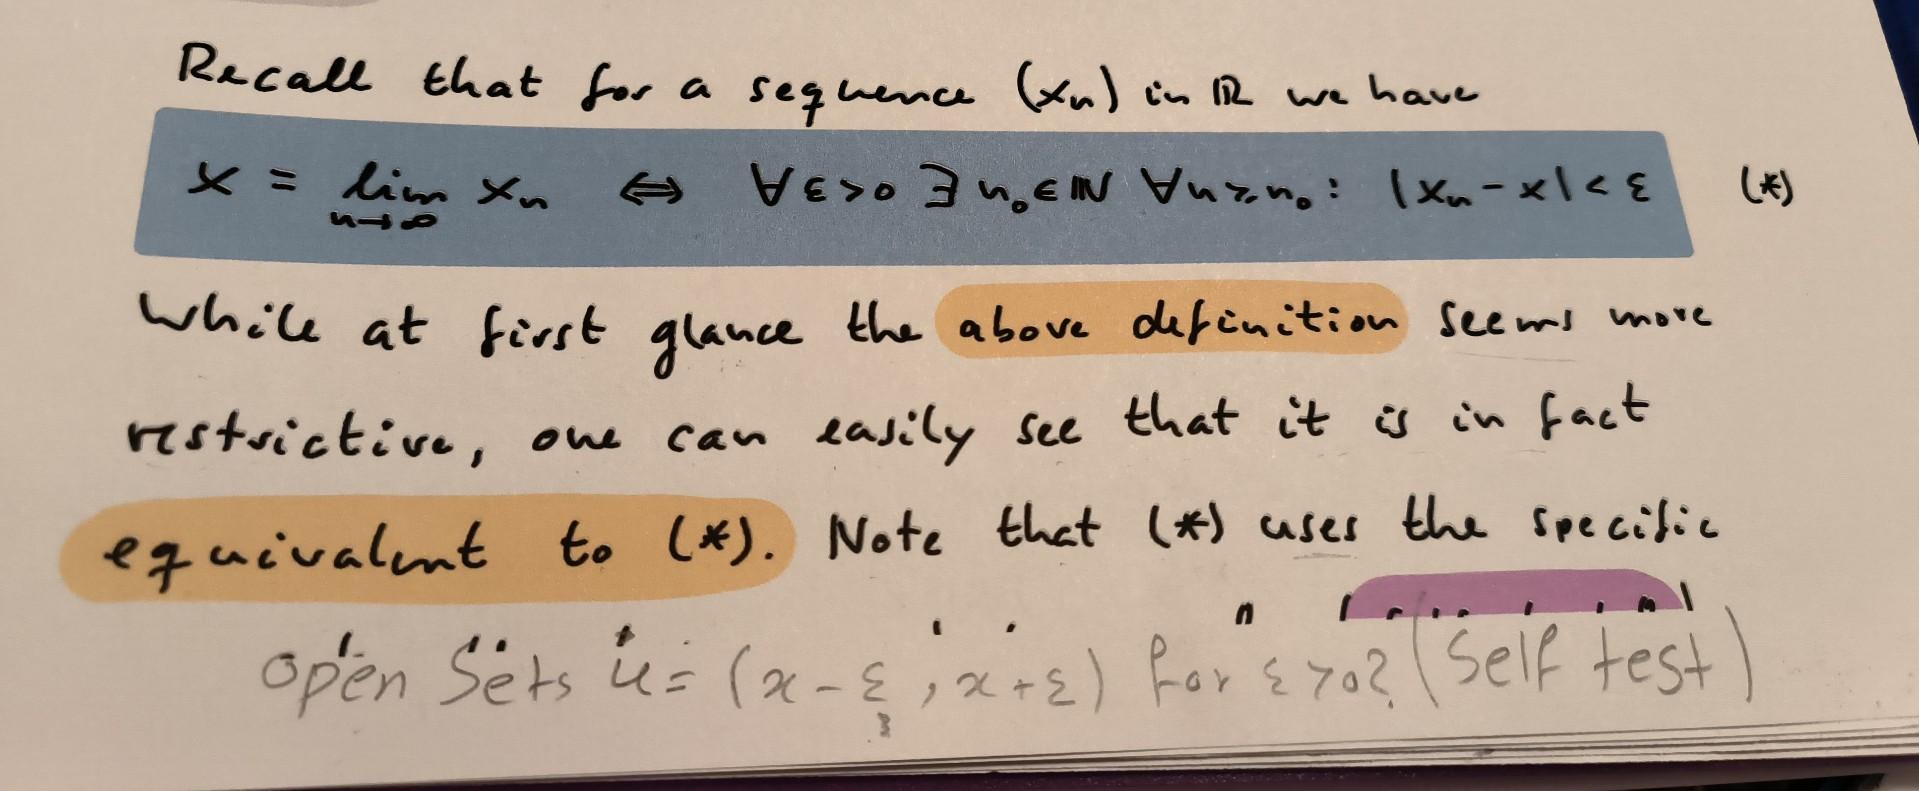 Recall that for a sequence (xₙ) in ℝ we have
x = lim xₙ ⇔ ∀ε>0 ∃n₀∈ℕ ∀n≥n₀: |xₙ-x|<ε (*)
n→∞
While at first glance the above definition seems more
restrictive, one can easily see that it is in fact
equivalent to (*). Note that (*) uses the specific
open sets u= (x-ε, x+ε) for ε>0? (Self test)